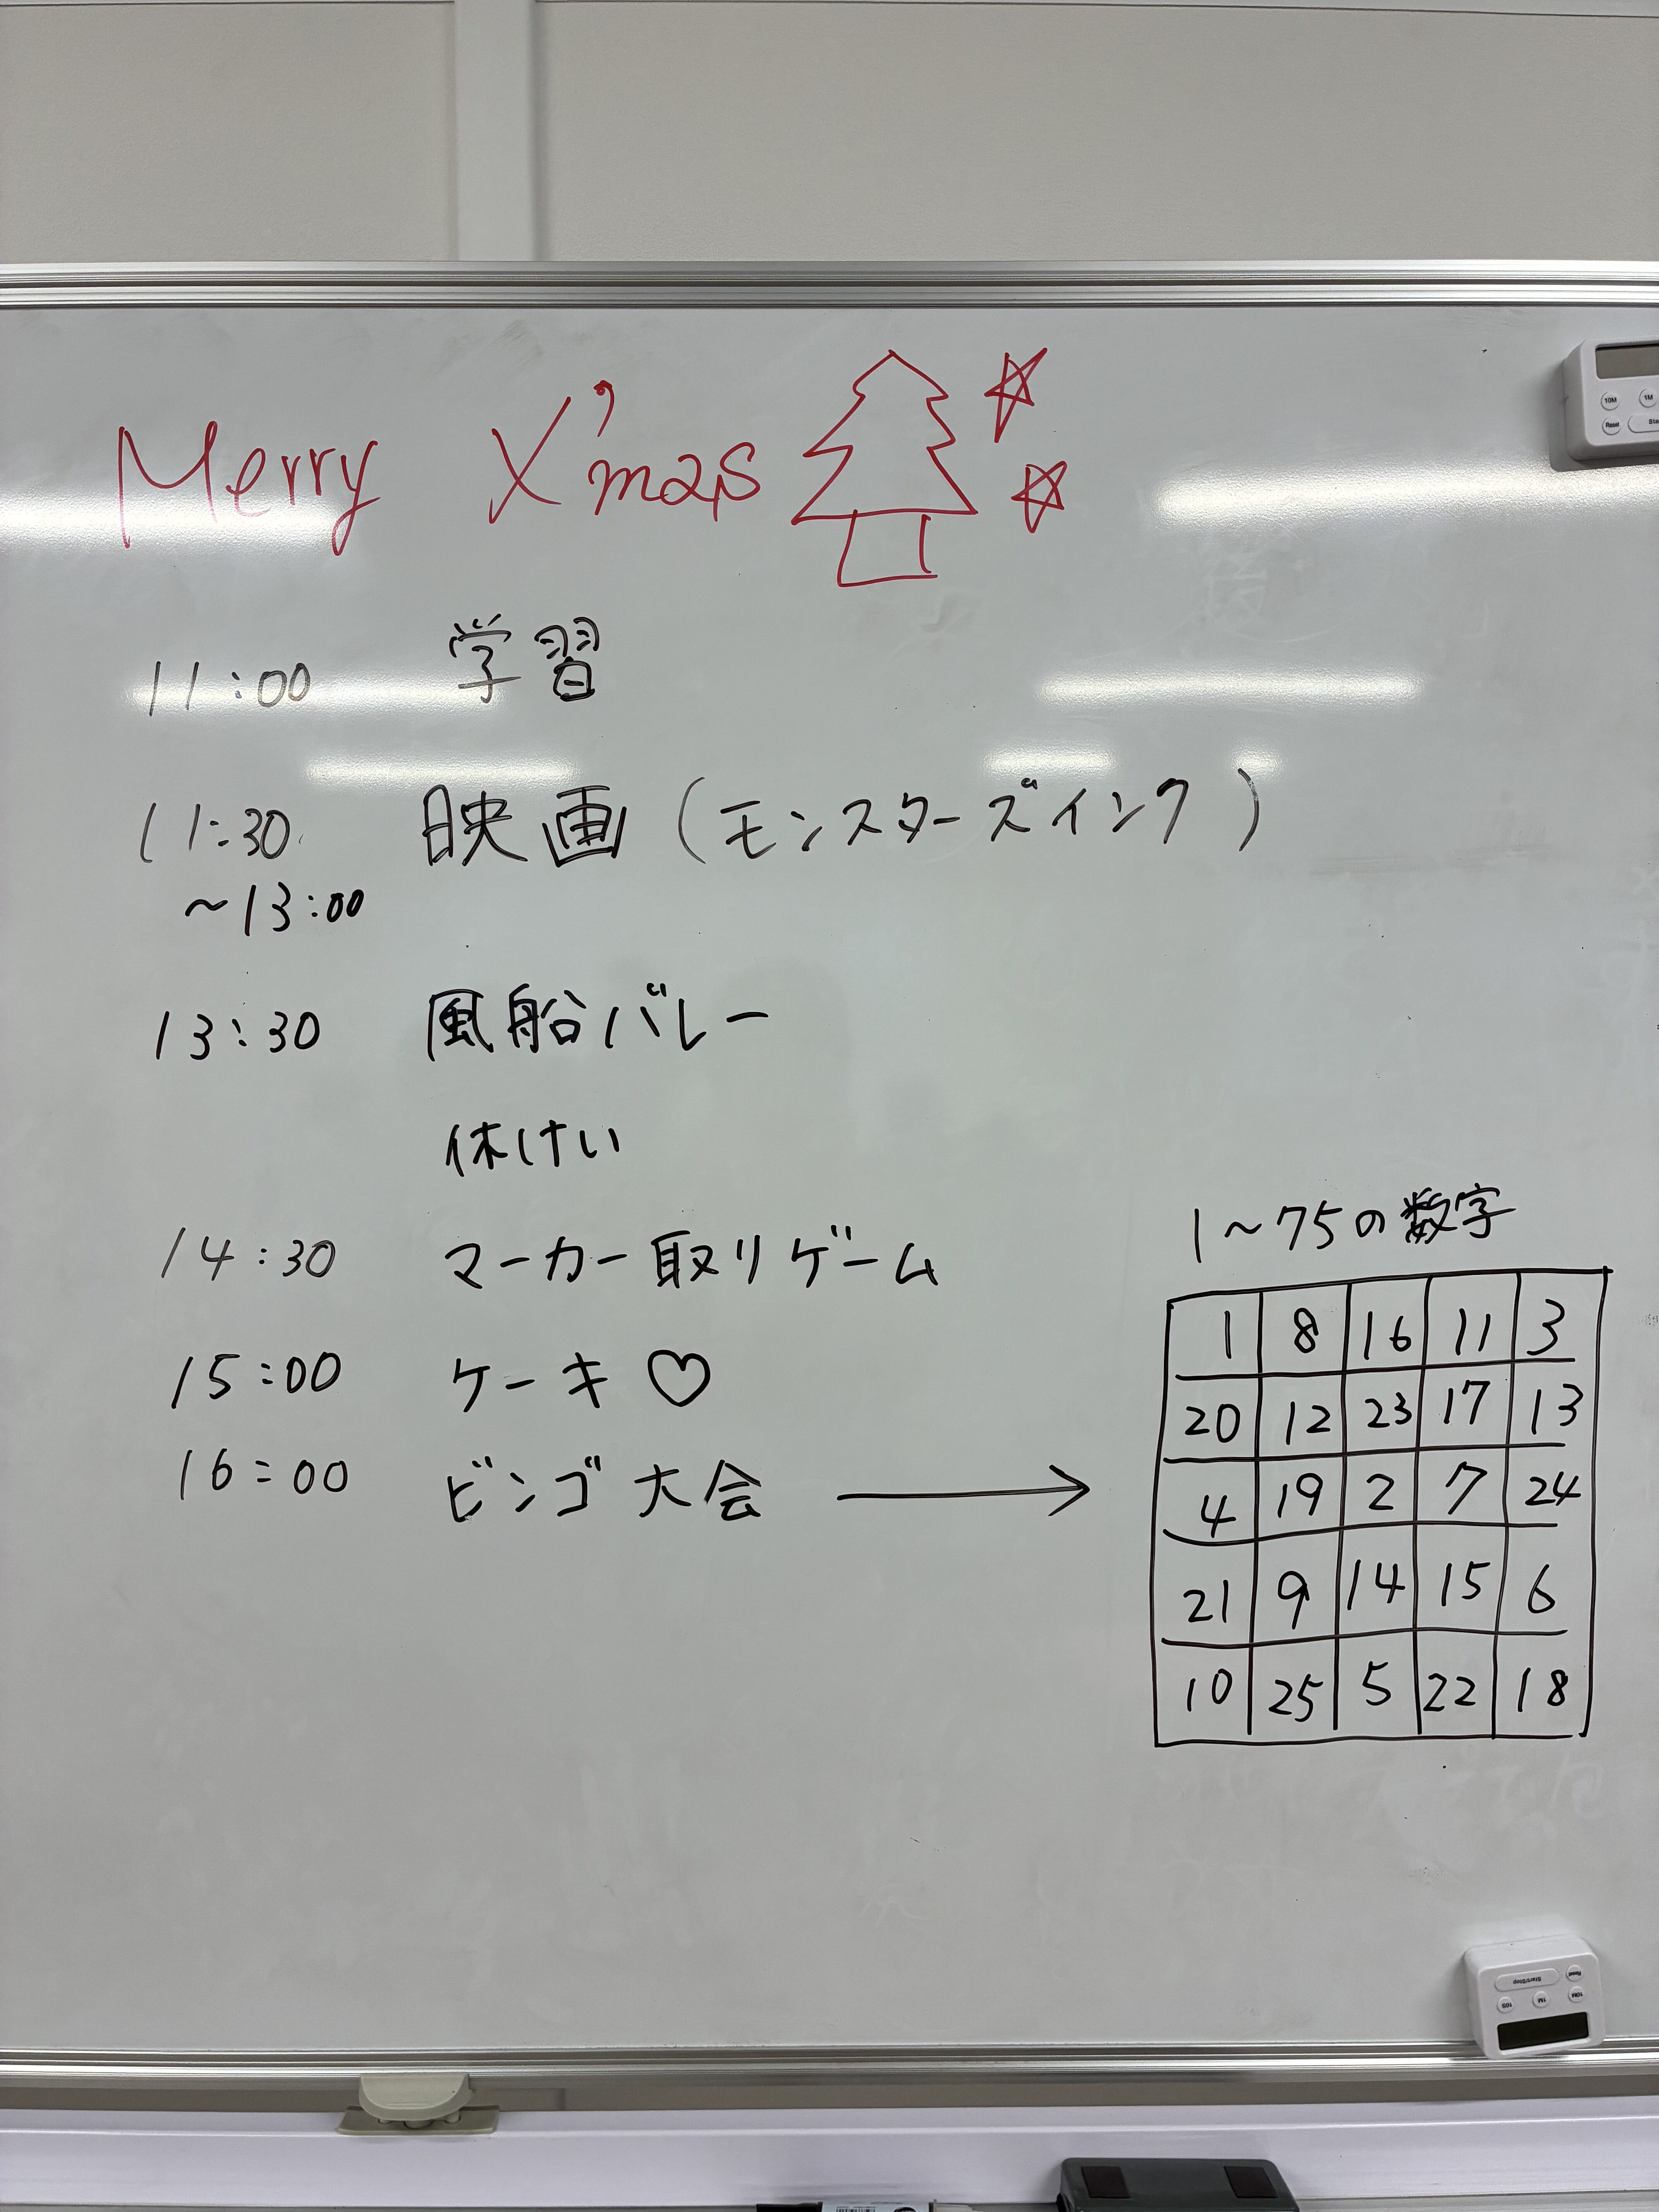 Merry X'mas
11:00 学習
11:30 映画(モンスターズインク)
~13:00
13:30 風船バレー
休けい
14:30 マーカー取りゲーム
15:00 ケーキ♡
16:00 ビンゴ大会 →
1~75の数字
1 8 16 11 3
20 12 23 17 13
4 19 2 7 24
21 9 14 15 6
10 25 5 22 18
10M 1M
Reset
Start/Stop Reset
10S 1M 10M